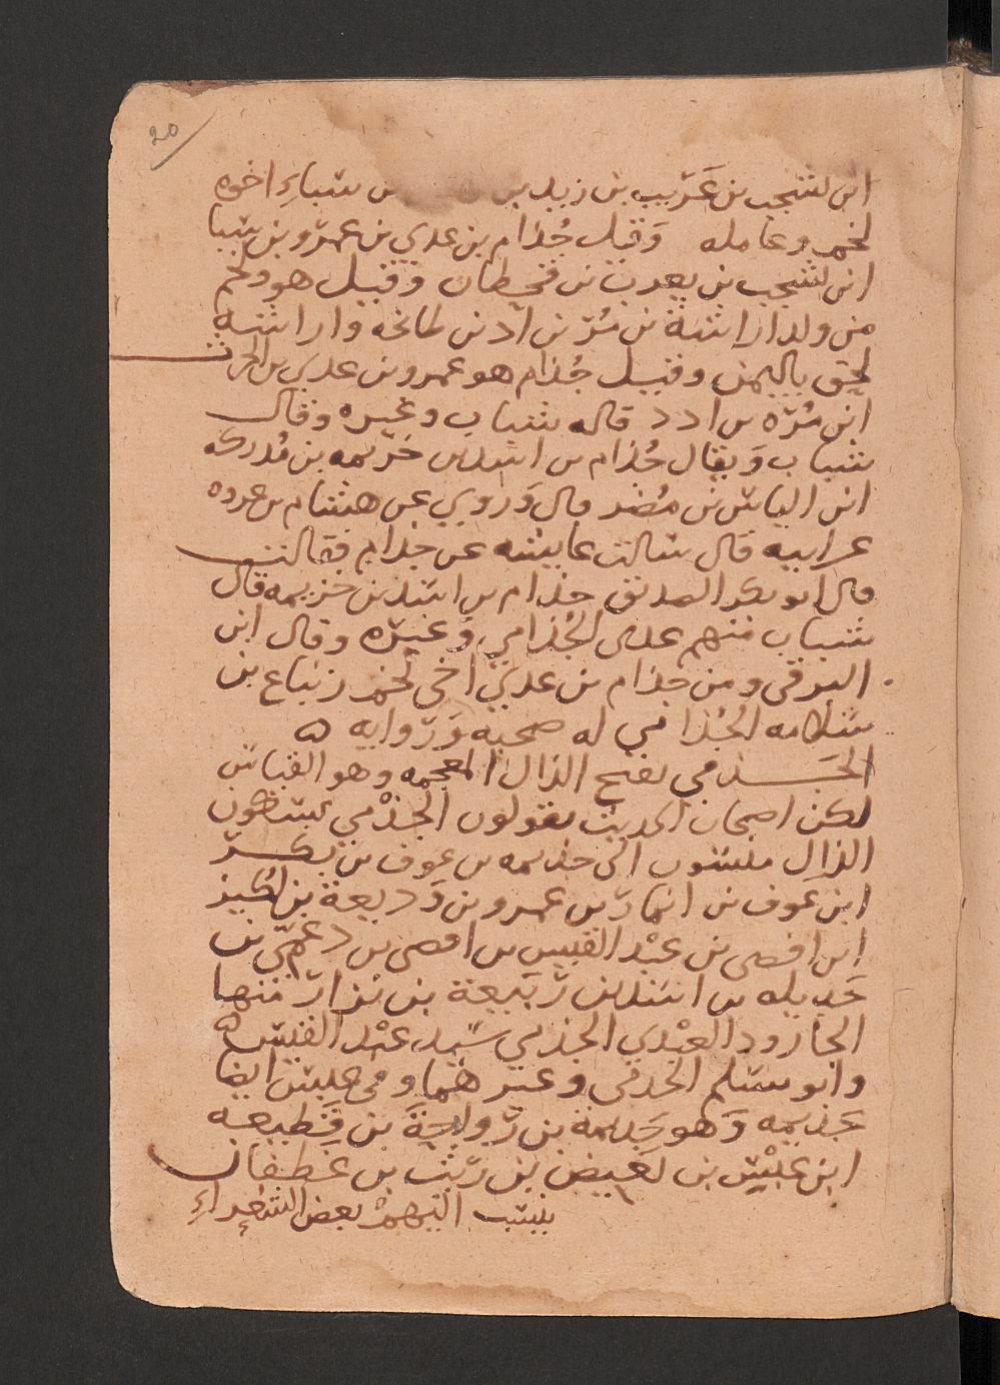 20
ابن يشجب بن عَرِيب بن زيد بن سباءِ اخوه
لخم وعامله وَقيل جُذام بن عدي بن عمرو بن سبا
ابن يشجب بن يعرب بن قحطان وقيل هو ولخم
من ولد اراشة بن مُرّ بن اد بن طابخه واراشه
لحق باليمن وقيل جُذام هو عمرو بن عدي بن الحرث
ابن مُرّه بن ادد قاله شباب وغيره وقال
شباب وَيقال جُذام بن اسد بن خزيمه بن مُدركه
ابن الياس بن مضر قال وَروي عن هشام بن عروه
عن ابيه قال سالت عايشه عن جذام فقالت
قال ابو بكر الصديق جذام بن اسد بن خزيمه قال
شباب منهم عدى الجُذامي وَغيرَه وقال ابن
البرقي ومن جذام بن عدي اخى لخم زنباع بن
سلامه الجُذامي له صحبه وَرِوايه ه
الجَـذمي بفتح الذال المعجمه وهو القياس
لكن اصحاب الحديث يقولون الجذْمي بسكون
الذال منسوب الى جذيمه بن عوف بن بكر
ابن عوف بن انمار بن عمرو بن وَديعة بن لُكيز
ابن افصى بن عبْد القيس بن افصى بن دعمّي بن
جَديله بن اسد بن رَبيعة بن نزار منها
الجارود العبْدي الجذمي سيد عبْد القيس ه
وابو مسلم الجذمى وغير هُما وفي عبس ايضا
جَذيمه وَهو جَذيمة بن رَواحَة بن قُطيعه
ابن عبْس بن بَغيض بن ريْث بن غطفان
ينسب اليهمْ بعض الشعراءِ